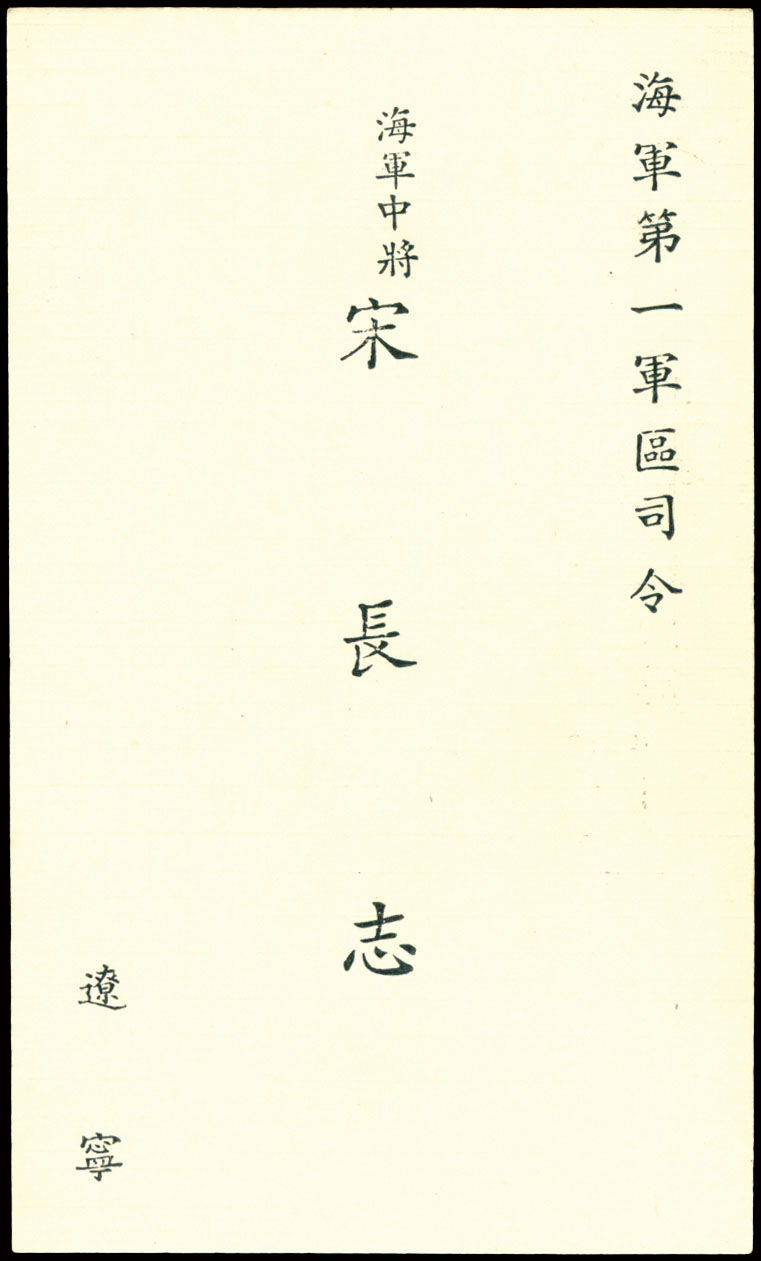 海軍第一軍區司令
海軍中將 宋長志
遼寧